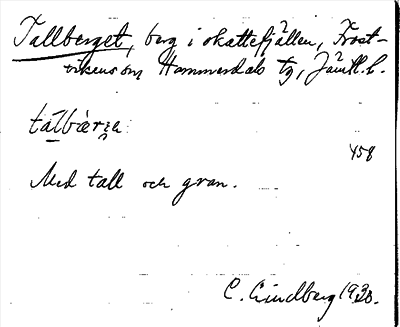 Tallberget, berg i skattefjällen, Frost-
vikens sn Hammerdals tg, Jämtl. l.
458
Med tall och gran.
C. Lindberg 1930.